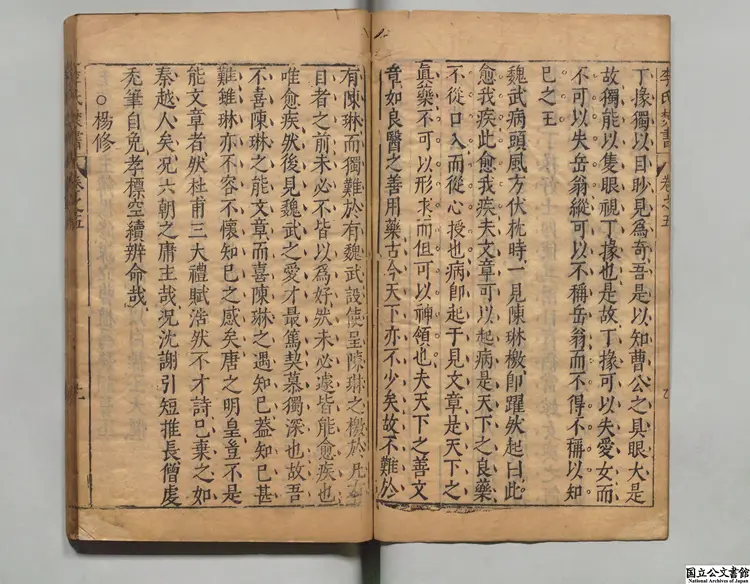 丁掾獨以目眇見爲奇吾是以知曹公之具眼大是
故獨能以隻眼視丁掾也是故丁掾可以失愛女而
不可以失岳翁縱可以不稱岳翁而不得不稱以知
已之王
魏武病頭風方伏枕時一見陳琳檄卽躍然起曰此
愈我疾此愈我疾夫文章可以起病是天下之良藥
不從口入而從心授也病卽起于見文章是天下之
眞藥不可以形求而但可以神領也夫天下之善文
章如良醫之善用藥古今天下亦不少矣故不難於
有陳琳而獨難於有魏武設使呈陳琳之檄於凡有
目者之前未必不皆以爲好然未必遽皆能愈疾也
唯愈疾然後見魏武之愛才最篤契慕獨深也故吾
不喜陳琳之能文章而喜陳琳之遇知已葢知已甚
難雖琳亦不容不懷知已之感矣唐之明皇豈不是
能文章者然杜甫三大禮賦浩然不才詩已棄之如
秦越人矣况六朝之庸主哉况沈謝引短推長僧虔
禿筆自免孝標空續辨命哉
○楊修
李氏焚書
卷之五
卷之五
国立公文書館
National Archives of Japan